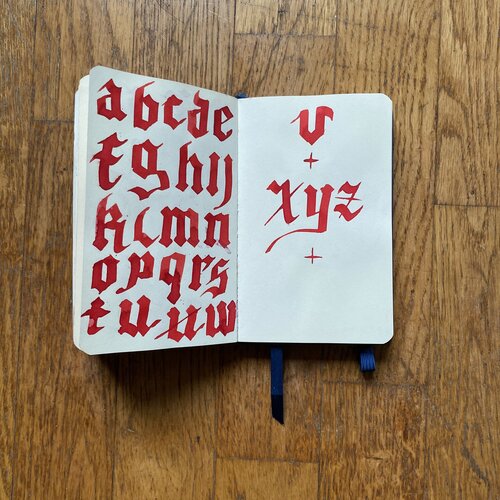 abcde
fghij
klmn
opqrs
tuuw
v
+
xyz
+